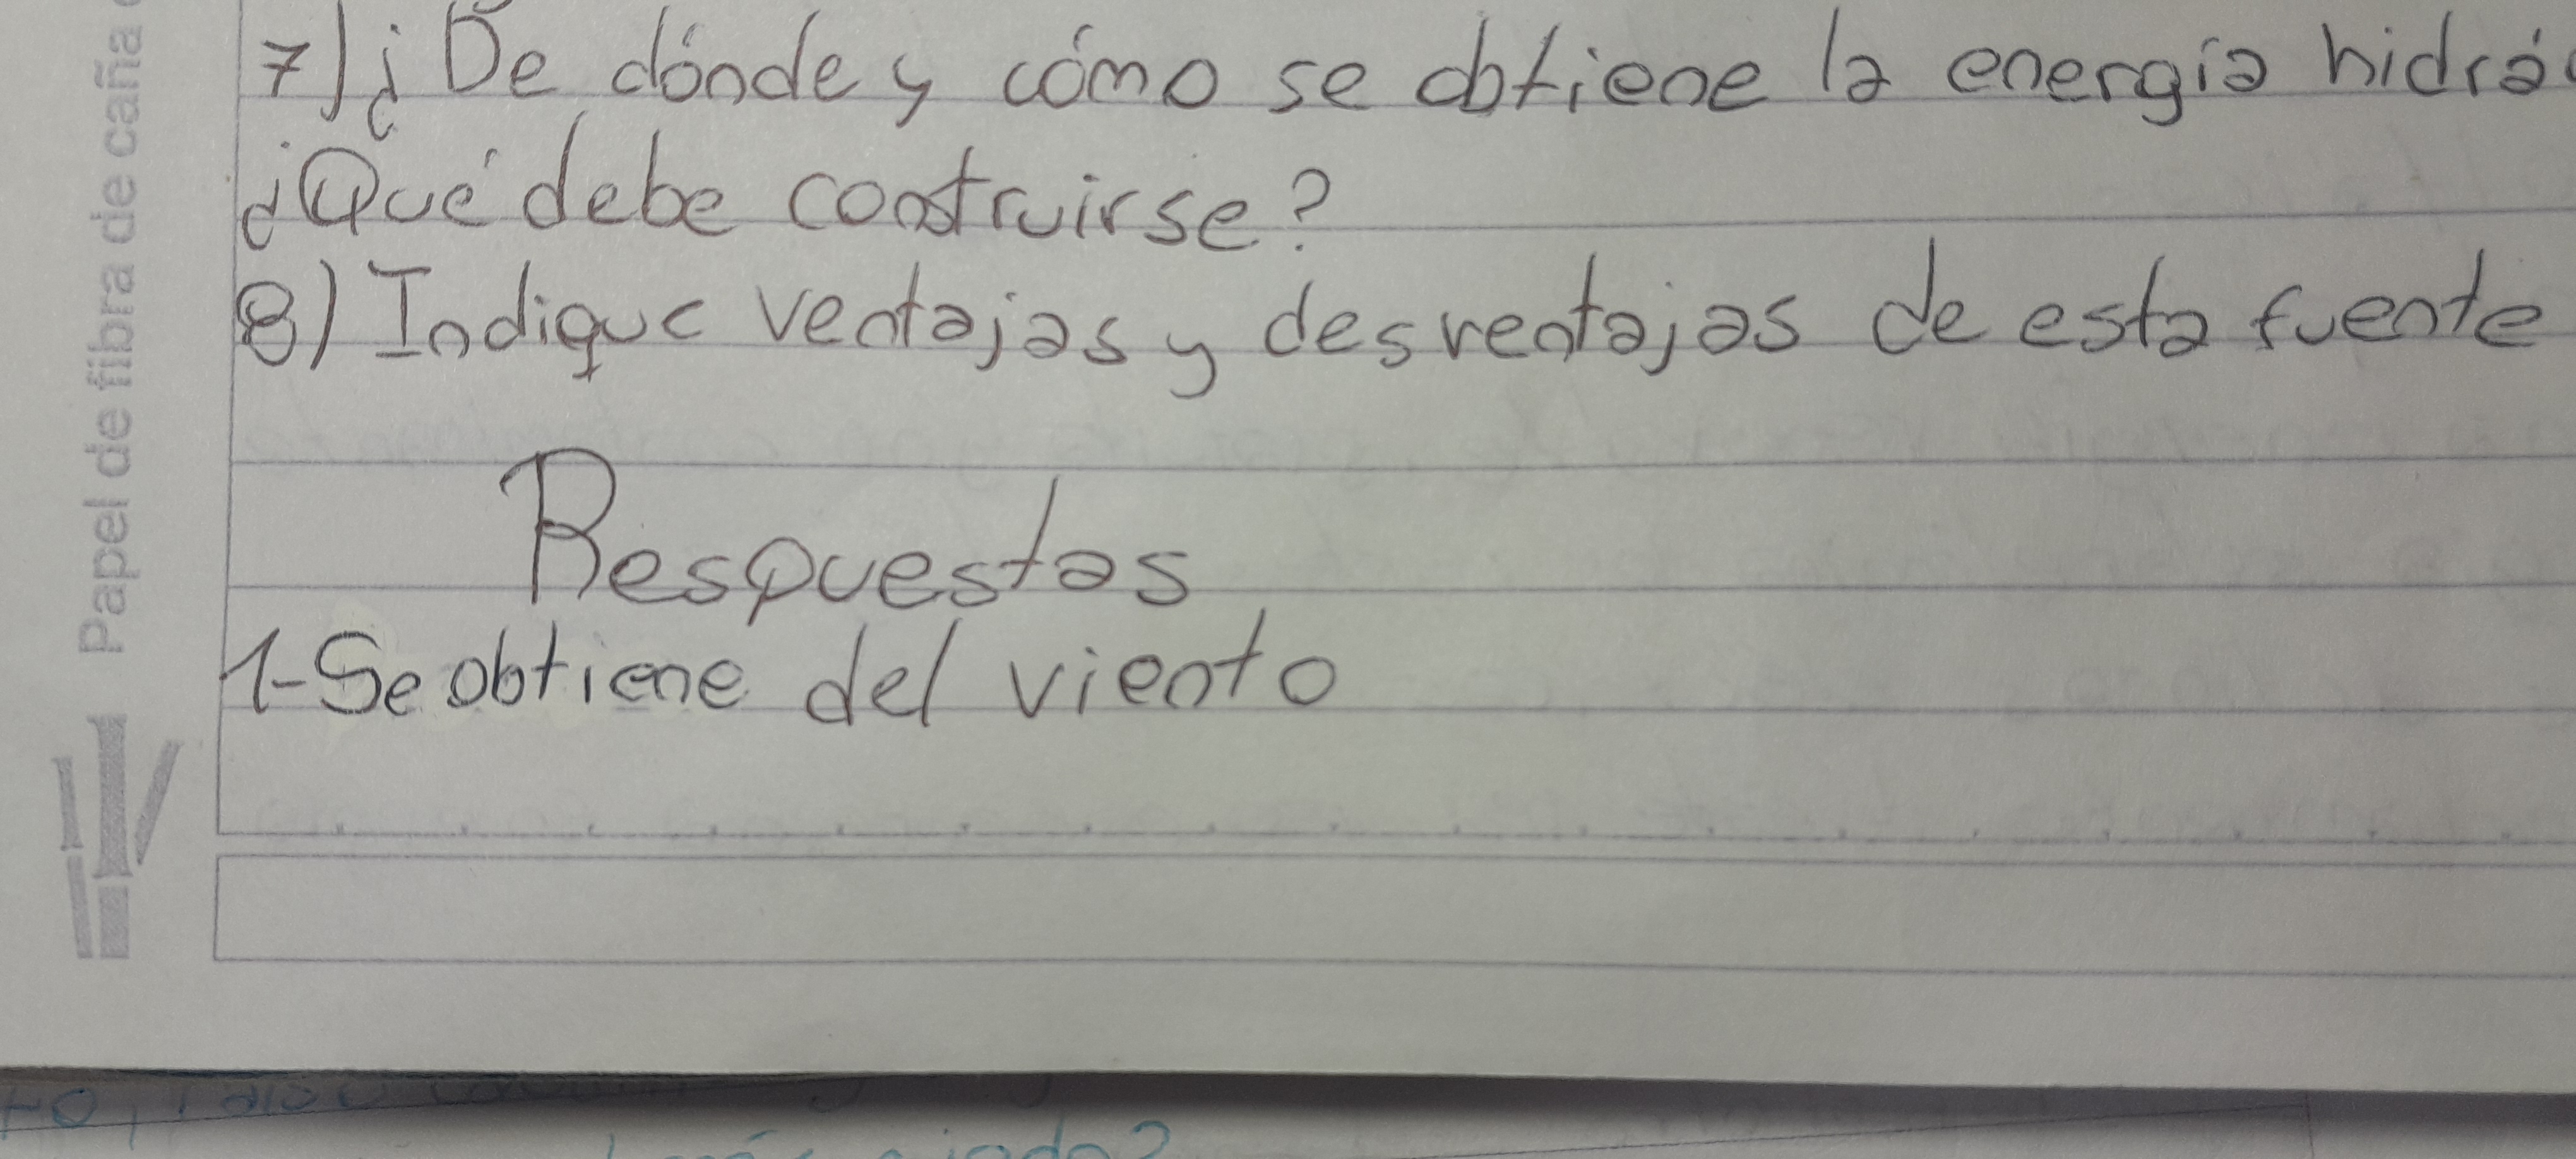 7) ¿De dónde y cómo se obtiene la energía hidrá
¿Qué debe construirse?
8) Indique ventajas y desventajas de esta fuente
Respuestas
1-Se obtiene del viento
Papel de fibra de caña